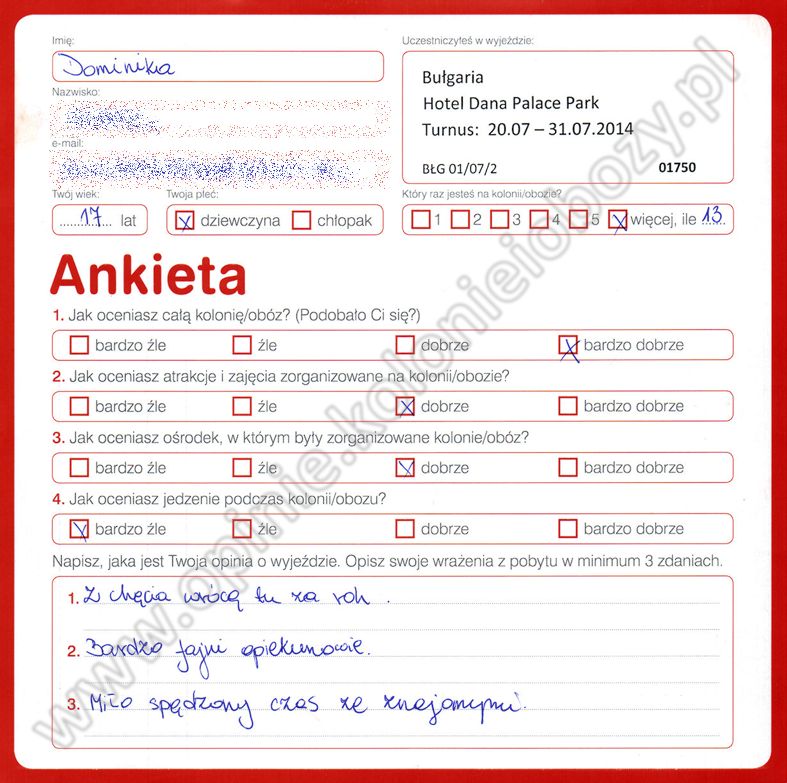 Imię:
Dominika
Nazwisko:
e-mail:
Twój wiek:
17 lat
Twoja płeć:
dziewczyna chłopak
Uczestniczyłeś w wyjeździe:
Bułgaria
Hotel Dana Palace Park
Turnus: 20.07 – 31.07.2014
BŁG 01/07/2 01750
Który raz jesteś na kolonii/obozie?
1 2 3 4 5 więcej, ile 13
Ankieta
1. Jak oceniasz całą kolonię/obóz? (Podobało Ci się?)
bardzo źle źle dobrze bardzo dobrze
2. Jak oceniasz atrakcje i zajęcia zorganizowane na kolonii/obozie?
bardzo źle źle dobrze bardzo dobrze
3. Jak oceniasz ośrodek, w którym były zorganizowane kolonie/obóz?
bardzo źle źle dobrze bardzo dobrze
4. Jak oceniasz jedzenie podczas kolonii/obozu?
bardzo źle źle dobrze bardzo dobrze
Napisz, jaka jest Twoja opinia o wyjeździe. Opisz swoje wrażenia z pobytu w minimum 3 zdaniach.
1. Z chęcia wrócą tu za rok.
2. Bardzo fajni opiekunowie.
3. Miło spędzony czas ze znajomymi.
www.opinie.kolonieiobozy.pl